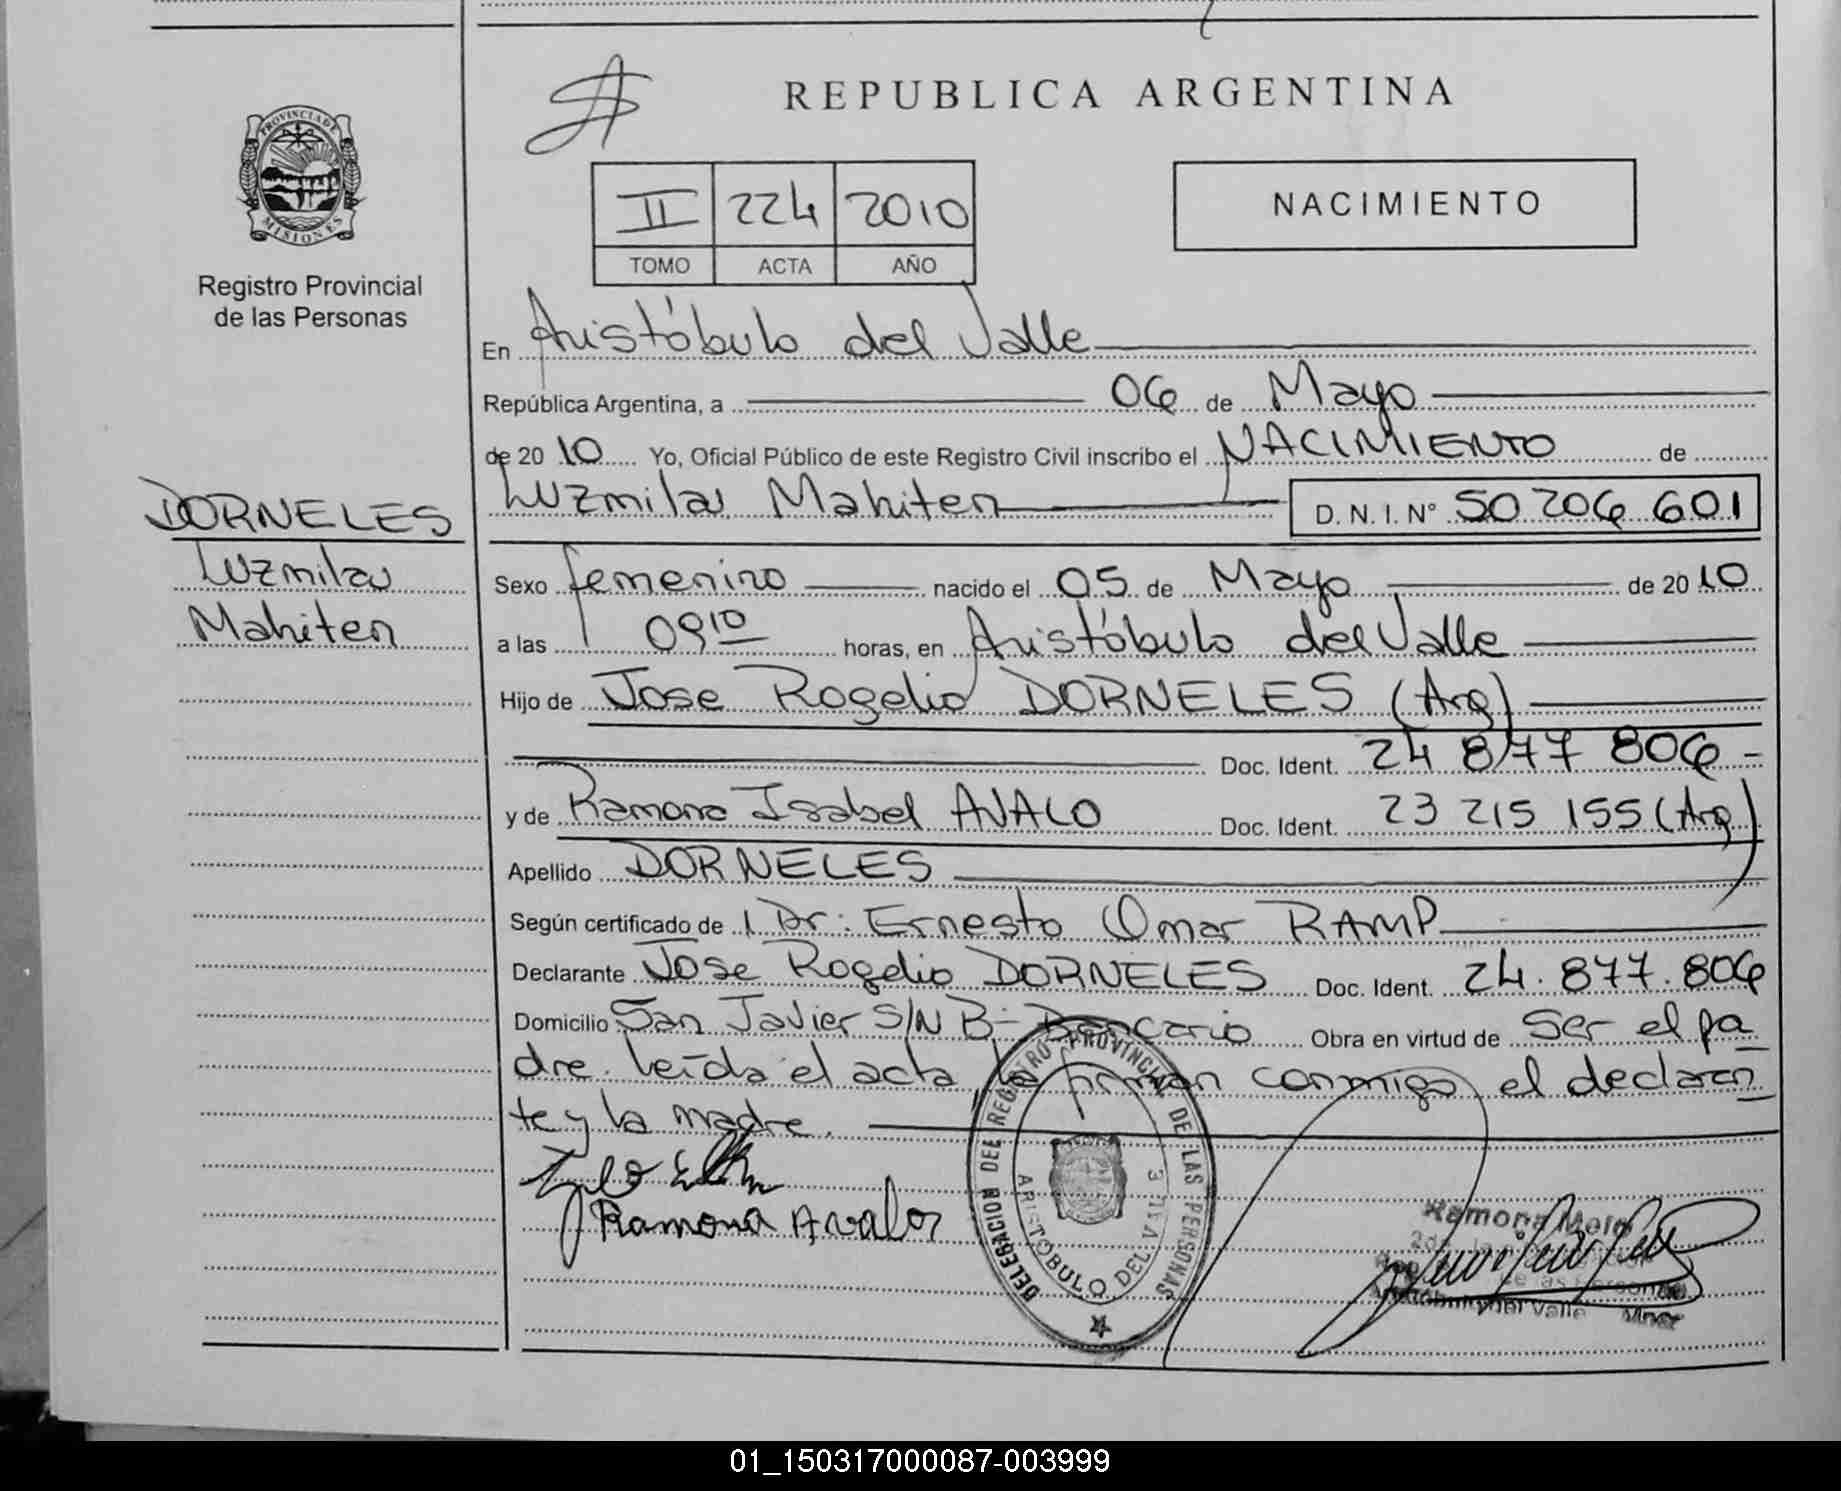 REPUBLICA ARGENTINA
PROVINCIA DE
MISIONES
Registro Provincial
de las Personas
II 224 2010
TOMO ACTA AÑO
NACIMIENTO
En Aristóbulo del Valle
República Argentina, a 06 de Mayo
de 20 10 Yo, Oficial Público de este Registro Civil inscribo el NACIMIENTO de
Luzmila Mahiten D. N. I. N° 50 206 601
DORNELES
Luzmila
Mahiten
Sexo femenino nacido el 05 de Mayo de 20 10
a las 09 10 horas, en Aristóbulo del Valle
Hijo de Jose Rogelio DORNELES (Arg)
Doc. Ident. 24 877 806 -
y de Ramona Isabel AVALO Doc. Ident. 23 215 155 (Arg)
Apellido DORNELES
Según certificado de l Dr: Ernesto Omar RAMP
Declarante Jose Rogelio DORNELES Doc. Ident. 24.877.806
Domicilio San Javier S/N B- Bancario Obra en virtud de Ser el pa
dre. Leída el acta, la firman conmigo el declaran
te y la madre.
Ramona Avalo
DELEGACION DEL REGISTRO PROVINCIAL DE LAS PERSONAS
ARISTÓBULO DEL VALLE
Ramona
de las Personas
del Valle Mnes
01_150317000087-003999